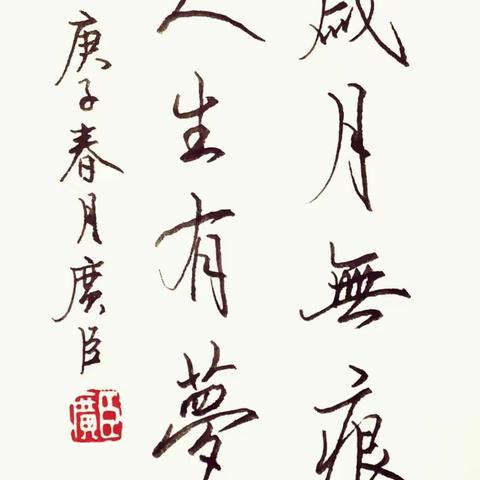 歲月無痕
人生有夢
庚子春月廣臣
廣臣